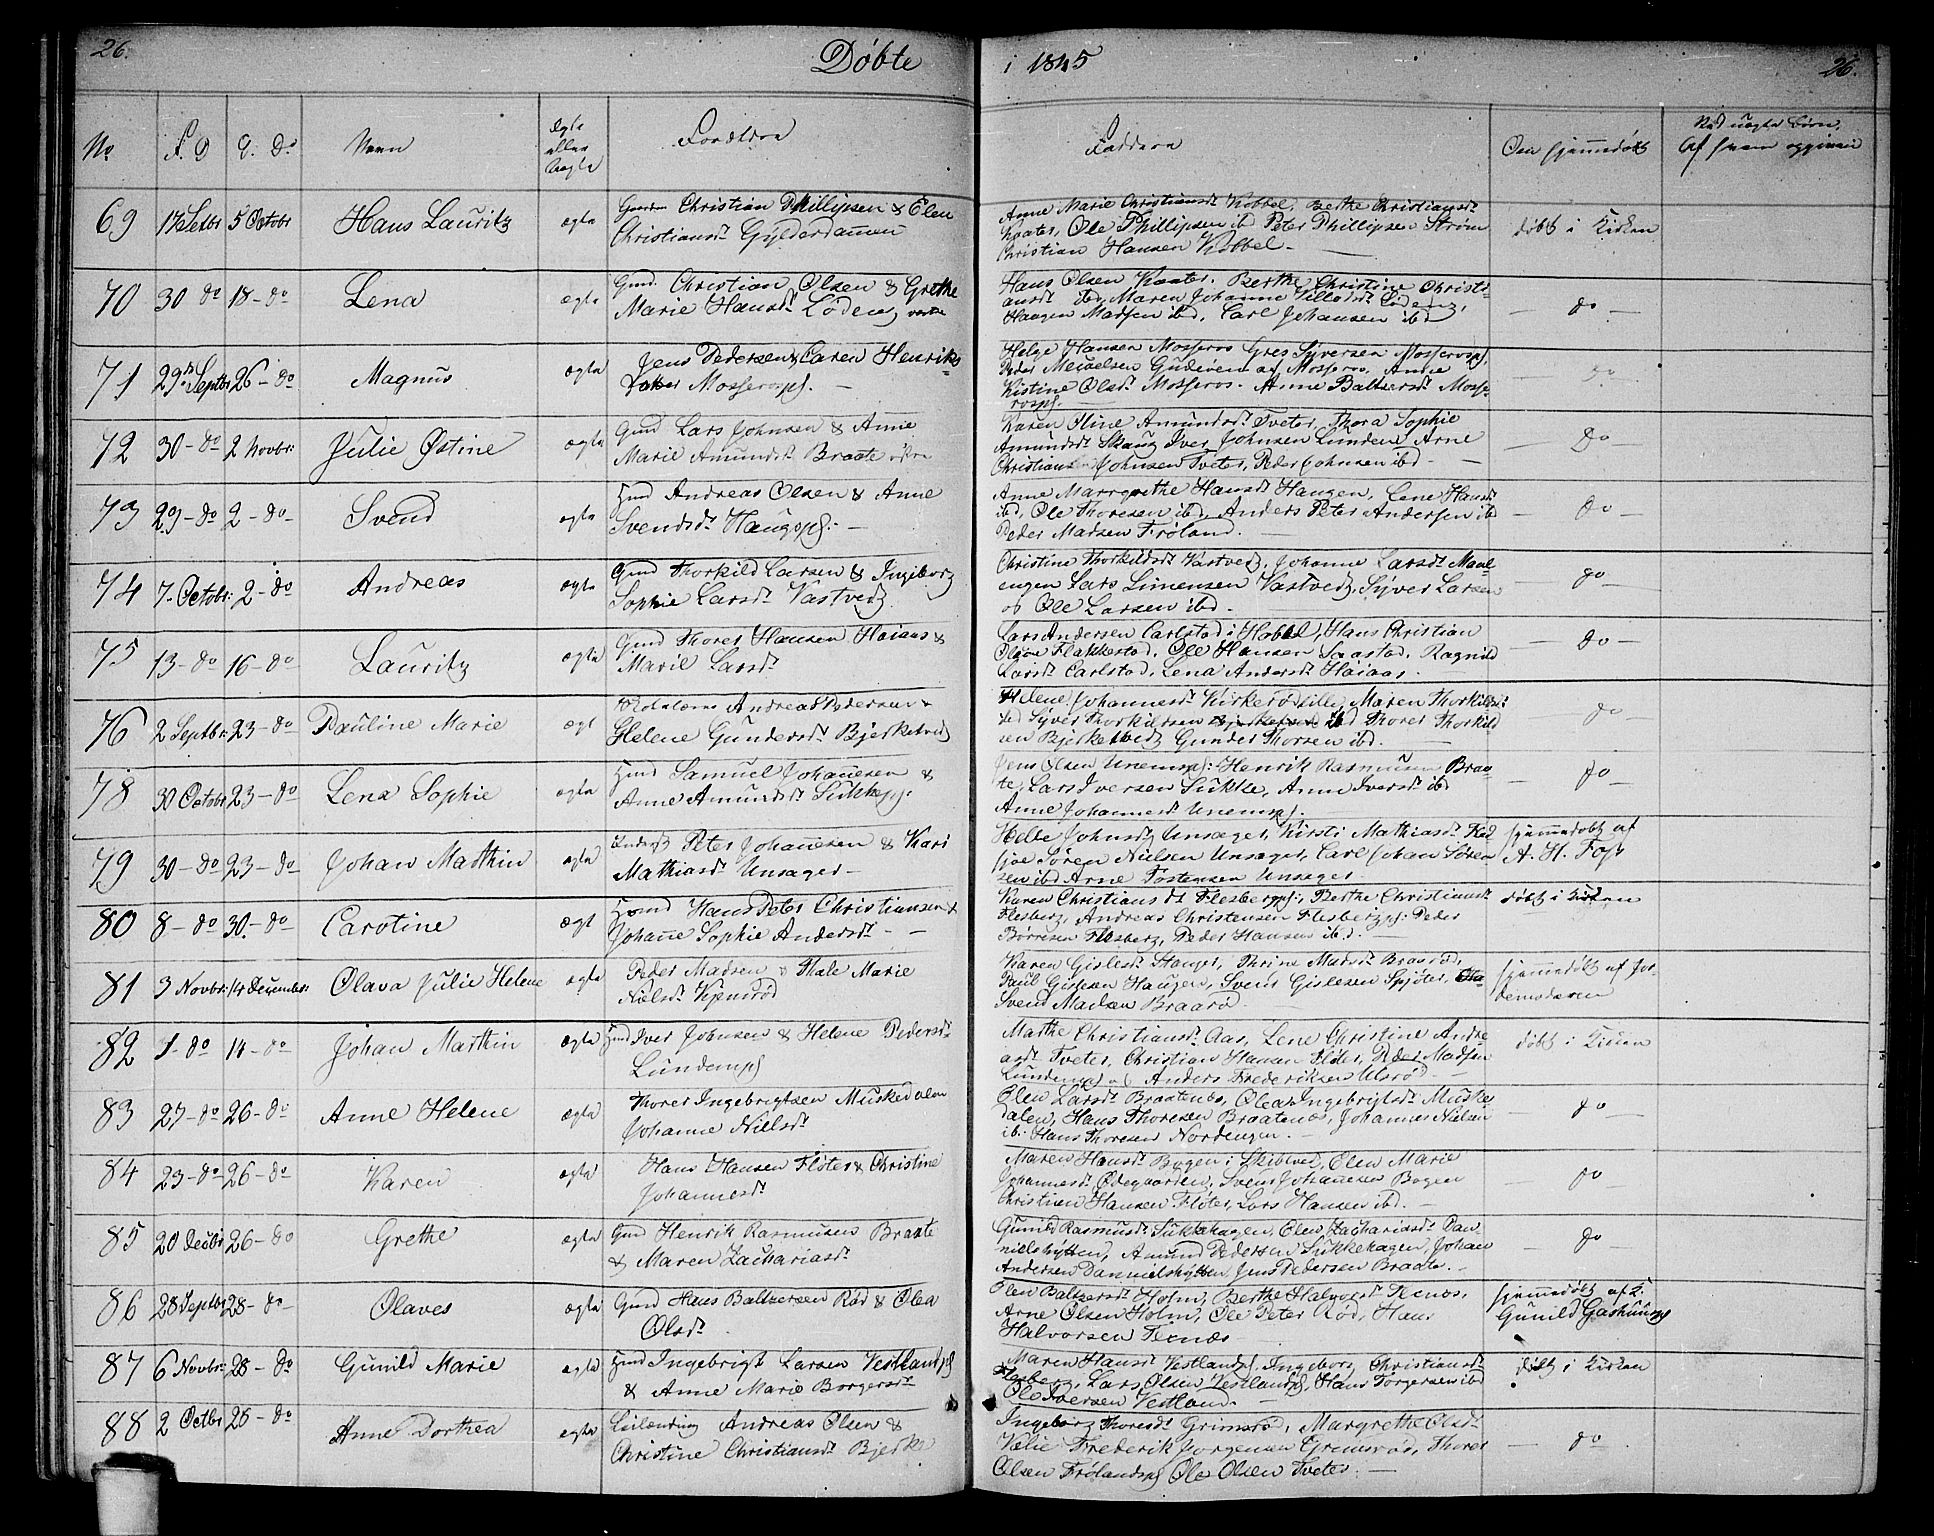 26. Døbte i 1845 26.
No F. D D. Do Navn Ægte eller Uægte Forældre Faddere Om hjemmedøbt Ved uægte Børn, Af hvem opgiven
69 17 Setbr 5 Octobr Hans Lauritz ægte Christian Phillipsen & Elen
Christiansdt Gylderdammen
Anne Marie Christiansdt Kobbel, Berthe Christiansdt
Kaater, Ole Phillipsen ibd Peter Phillipsen Strøm
Christian Hansen Kobbel –
døbt i Kirken
70 30 – do 18 – do Lena ægte Gmd. Christian Olsen & Grethe
Marie Hansdt Løden
Hans Olsen Kaater. Berthe Christine Christi-
ansdt ibd, Maren Johanne Villadsdt Løden,
Haagen Madsen ibd, Carl Johansen ibd
– do –
71 29de Septbr 26 – do Magnus ægte Jens Pedersen & Caren Henriks
Mosserospl. –
Helge Hansen Mosseros Gres Syversen Mosserospl.
Peder Micaelsen Gudeven af Mosseros, Anne
Kistine Olsdt Mosseros. Anne Baltzersdt Mosse-
rospl.
– do –
72 30 – do 2 Novbr. Julie Østine ægte Gmd Lars Johnsen & Anne
Marie Amundsdt Braate
Karen Oline Amundsdt Tveter, Thora Sophie
Amundsdt Skaug Iver Johnsen Lunden Arne
Christiansen Johnsen Tveter, Peder Johnsen ibd –
– do –
73 29 – do 2 – do – Svend ægte Hmd Andreas Olsen & Anne
Svendsdt Haugspl. –
Anne Marrgrethe Hansdt Haugen, Lene Hansdt
ibd, Ole Thoresen ibd, Anders Peter Andersen ibd
Peder Madsen Frøland. –
– do –
74 7. Octobr: 2 – do Andreas ægte Gmd Thorkild Larsen & Ingeborg
Sophie Larsdt Vastvedt
Christine Thorkildsdt Vastvedt, Johanne Larsdt Maal-
engen Lars Simensen Vastvedt, Syver Larsen
og Ole Larsen ibd.
– do –
75 13 – do 16 – do Lauritz ægte Gmd Thorer Hansen Haiaas &
Marie Larsdt
Lars Andersen Carlstad i Hobel, Hans Christian
Olsen Flakkestad, Ole Hansen Saastad, Ragnild
Larsdt Carlstad, Lena Andersdt Haiaas.
– do –
76 2 Septbr. 23 – do Pauline Marie ægt Andreas Pedersen &
Helene Gundersdt Bjerketvedt
Helene Johannesdt Kirkerød lille, Maren Thorkildsdt
ibd Syver Thorkildsen ibd Thorer Thorkild
sen Bjerketvedt Gunder Thorsen ibd. –
do
78 30 Octobr 23 – do Lena Sophie ægte Hmd Samuel Johanesen &
Anne Amundsdt Sukkepl.
Jens Olsen Unemspl: Henrik Rasmusen Braa-
te, Lars Iversen Sukke, Anne Iversdt ibd
Anne Johannesdt Unemspl.
– do –
79 30 – do 23 – do Johan Marthin ægte Peter Johanesen & Kari
Mathiasdt Unsager –
Helle Johnsdt Unsager, Kirsti Mathiasdt
Søren Nielsen Unsager, Carl Johan Søren
sen ibd Arne Torstensen Unsager.
hjemmedøbt af
A. H. Foss
80 8 – do 30. – do Carotine ægt Hmd Hans Peter Christiansen &
Johane Sophie Andersdt – –
Karen Christiansdt Flesbergpl: Berthe Christiansdt
Flesberg, Andreas Christensen Flesbergpl: Peder
Børresen Flesberg, Peder Hansen ibd. –
døbt i Kirken
81 3 Novbr: 14 December: Olava Julie Helene ægte Peder Madsen & Thale Marie
Nielsdt Kjensrød
Karen Gislesdt Hauger, Thrine Madsdt Braarød,
Paul Gislesen Haugers, Svend Gislesen Spjøter,
Svend Madsen Braarød –
hjemmedøbt af Jor-
demoderen
82 1 – do 14 – do Johan Marthin ægte Hmd Iver Johnsen & Helene Pedersdt
Lundempl
Marthe Christiansdt Aas, Lene Christine Andre
asdt Tveter, Christian Hansen Fløter, Peder Madsen
Lundempl og Anders Frederiksen Ulsrød –
døbt i Kirken
83 27 – do 26 – do Anne Helene ægte Thorer Ingebrigtsen Muskedalen
Johanne Nielsdt
Elen Larsdt Braatenes, Olea Ingebrigtsdt Muske
dalen, Hans Thoresen Braatenes, Johannes Nielsen
ib: Hans Thoresen Nordengen. –
– do –
84 23 – do 26 – do Karen ægte Hans Hansen Fløter & Christine
Johannesdt
Maren Hansdt Bogen i Skibtvet, Elen Marie
Johannesdt Ødegaarden, Svend Johanesen Bogen
Christian Hansen Fløter, Lars Hansen ibd.
– do –
85 20 Decbr 26 – do Grethe ægte Gmd Henrik Rasmusen Braate
& Maren Zachariasdt
Gunild Rasmusdt Sukkehagen, Elen Zachariasdt Dan-
nielshytten, Amund Pedersen Sukkehagen, Johan
Andersen Dannielshytten, Jens Pedersen Braate. –
– do –
86 28 Septbr 28 – do – Olaves ægte Gmd Hans Baltzersen Rød & Olea
Olsdt.
Elen Baltzersdt Holm, Berthe Halvorsdt Texnæs,
Arne Olsen Holm, Ole Peter Rød, Hans
Halvorsen Texnæs –
hjemmedøbt af K.
Gunild Gashuuspl
87 6 Novbr. 28 – do Gunild Marie ægte Hmd Ingebrigt Larsen Vestlandpl
& Anne Marie Borgersdt
Maren Hansdt Vestlandpl, Ingeborg Christiansdt
Flesberg, Lars Olsen Vestlandpl, Hans Torgersen ibd
Ole Iversen Vestland. –
døbt i Kirken
88 2 Octbr 26 – do Anne Dorthea ægte Leilænding Andreas Olsen &
Christine Christiansdt Bjerke
Ingeborg Thoresdt Grimsrød, Margrethe Olsdt
Vælie Frederik Jørgensen Gremsrød, Thorer
Olsen Frølandspl Ole Olsen Tveter. –
– do –